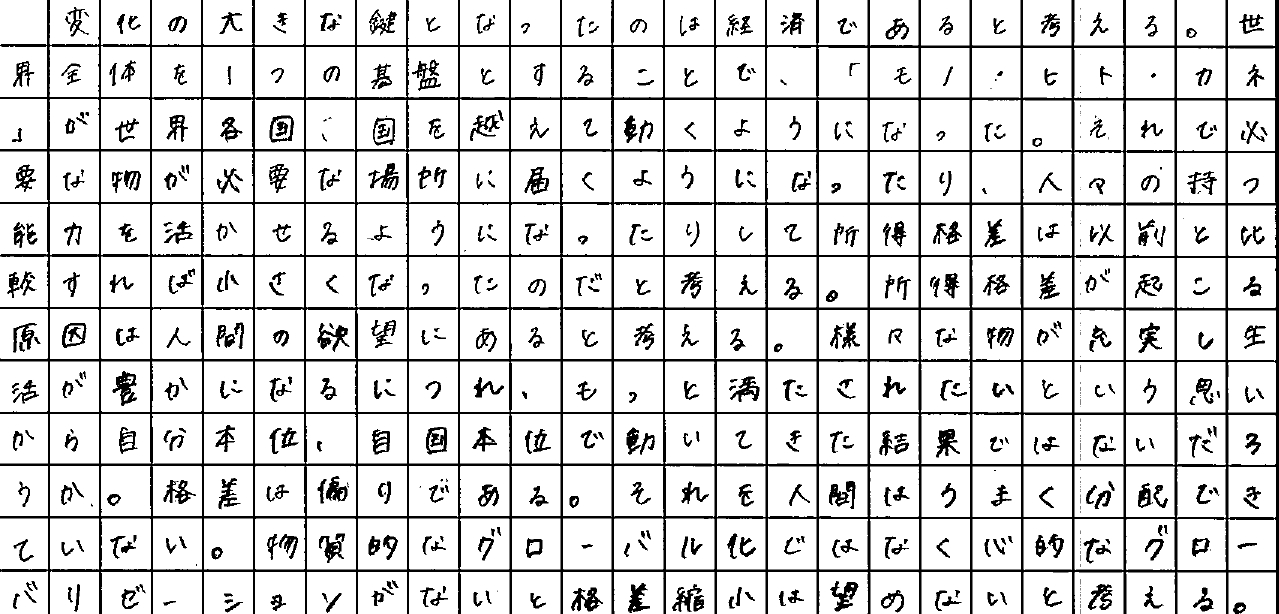 変化の大きな鍵となったのは経済であると考える。世
界全体を1つの基盤とすることで、「モノ・ヒト・カネ
」が世界各国、国を越えて動くようになった。それで必
要な物が必要な場所に届くようになったり、人々の持つ
能力を活かせるようになったりして所得格差は以前と比
較すれば小さくなったのだと考える。所得格差が起こる
原因は人間の欲望にあると考える。様々な物が充実し生
活が豊かになるにつれ、もっと満たされたいという思い
から自分本位、自国本位で動いてきた結果ではないだろ
うか。格差は偏りである。それを人間はうまく分配でき
ていない。物質的なグローバル化ではなく心的なグロー
バリゼーションがないと格差縮小は望めないと考える。